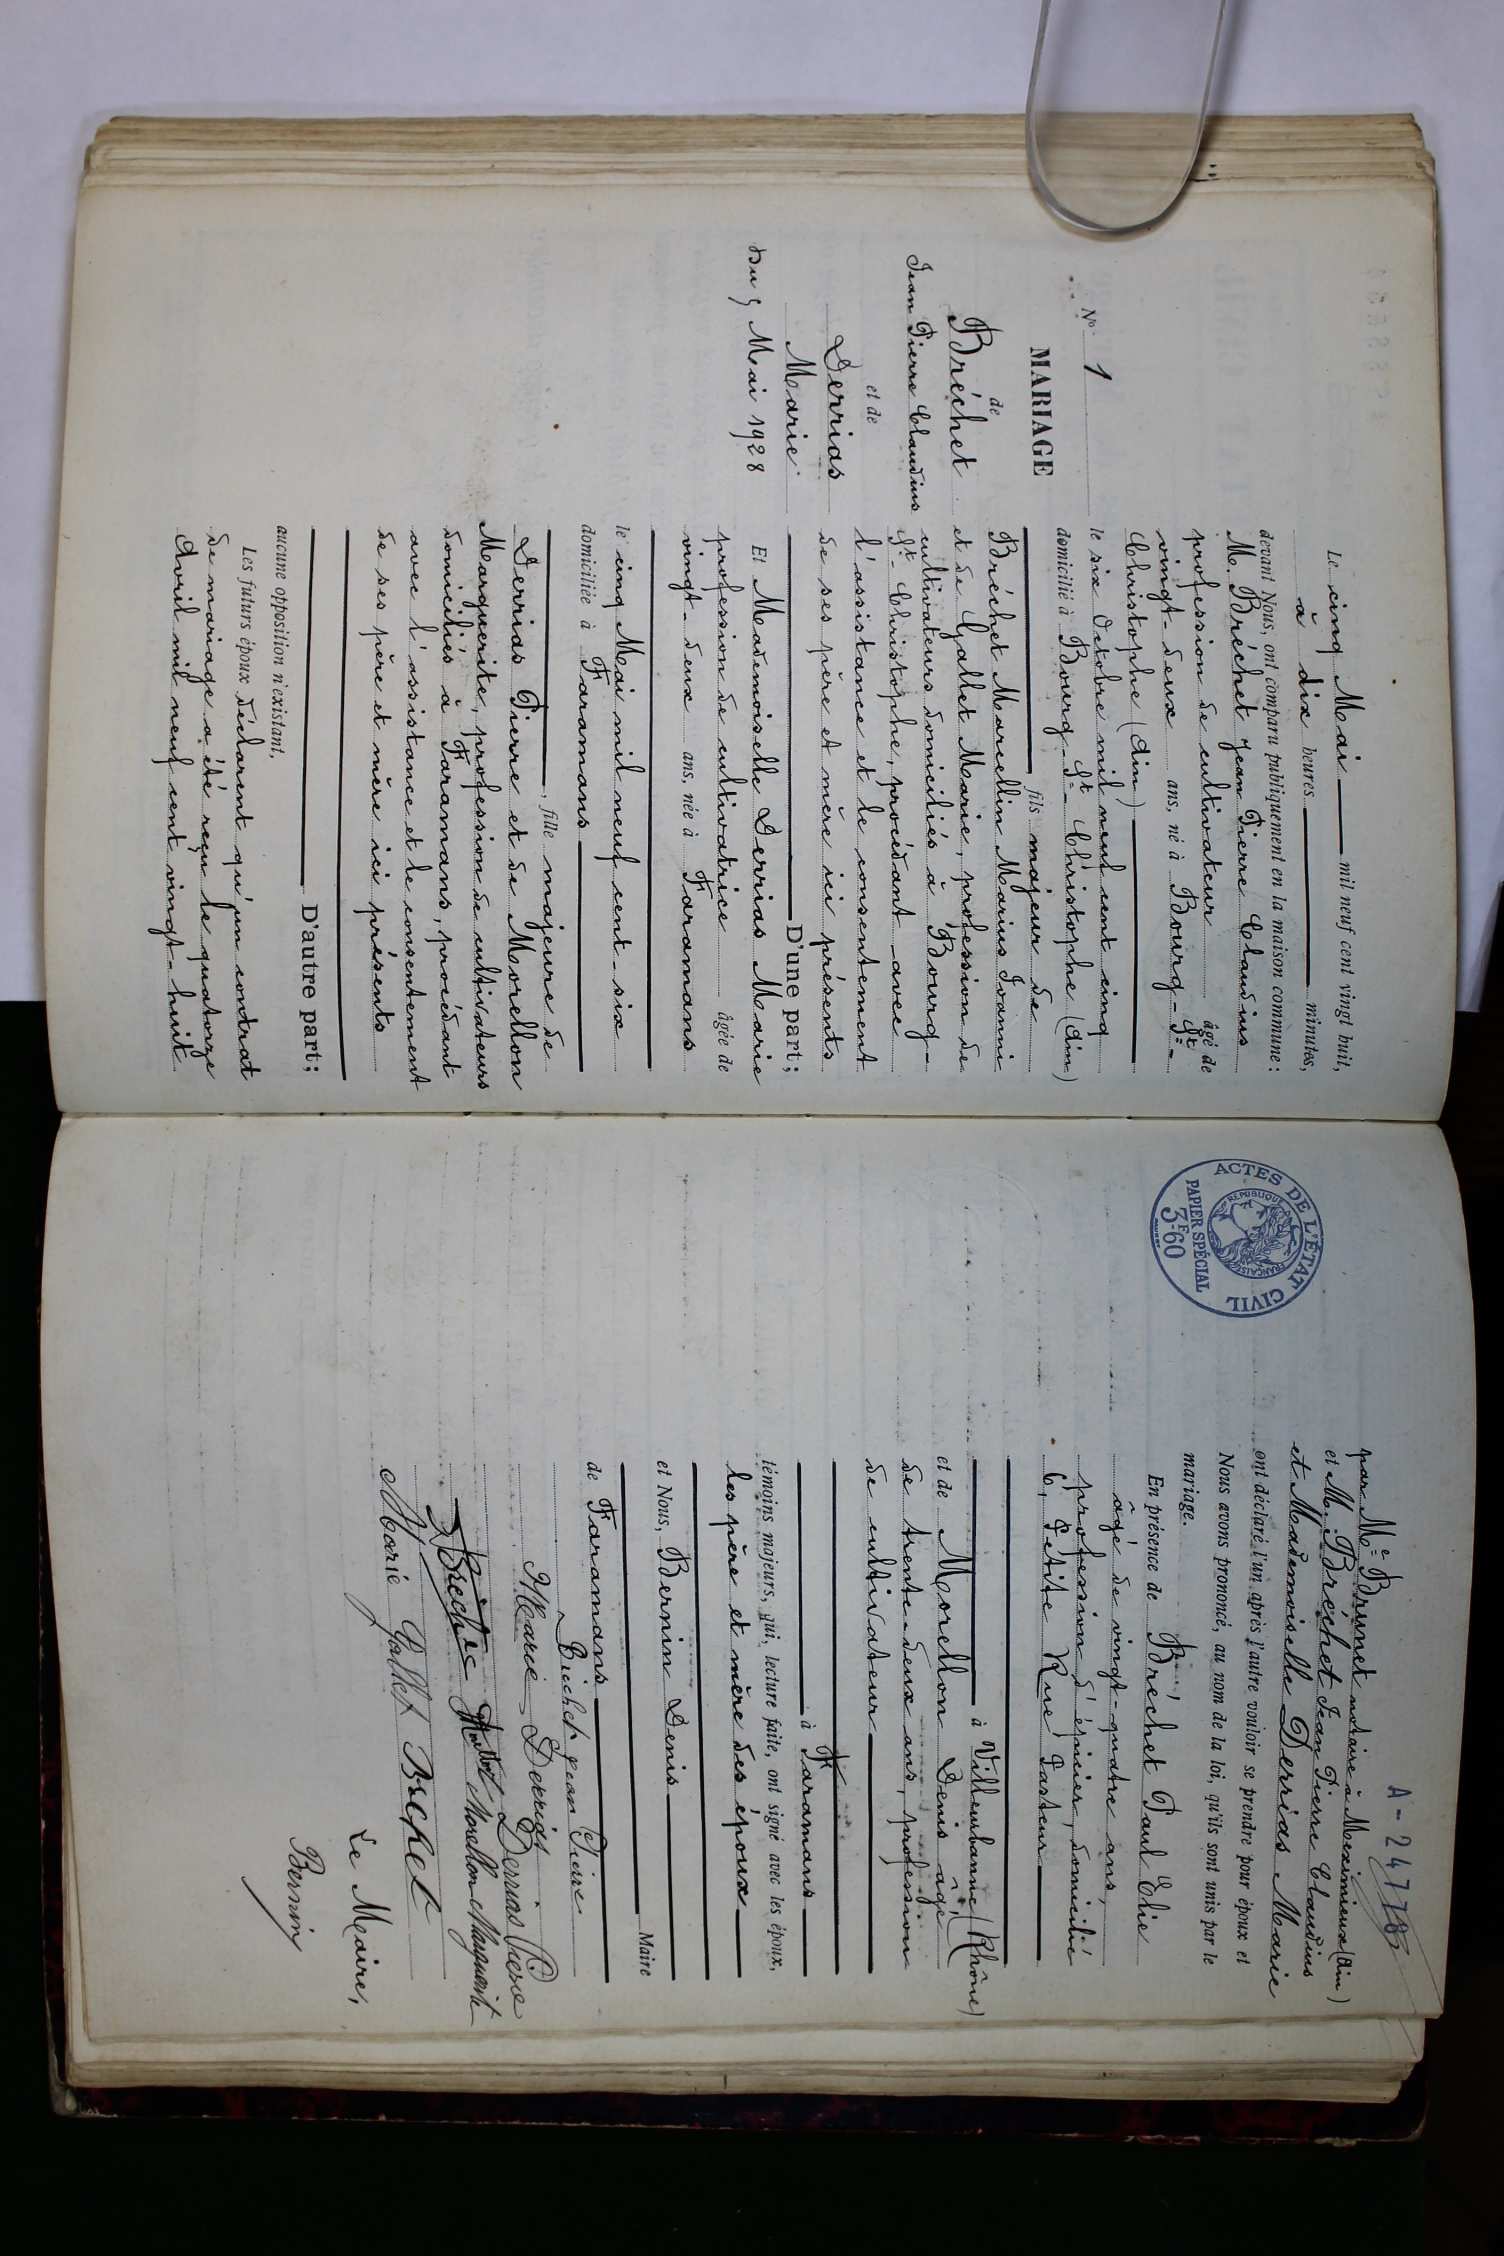 N° 1
MARIAGE
de
Bréchet
Jean Pierre Claudius
et de
Derrias
Marie
Du 5 Mai 1928
Le cinq Mai mil neuf cent vingt huit,
à dix heures minutes,
devant Nous, ont comparu publiquement en la maison commune :
M. Bréchet Jean Pierre Claudius
profession de cultivateur âgé de
vingt-deux ans, né à Bourg-St-
Christophe (Ain)
le six Octobre mil neuf cent cinq
domicilié à Bourg-St-Christophe (Ain)
fils majeur de
Bréchet Marcellin Marius Joanni
et de Gallet Marie, profession de
cultivateurs domiciliés à Bourg-
St-Christophe, procédant avec
l'assistance et le consentement
de ses père et mère ici présents
D'une part ;
Et Mademoiselle Derrias Marie
profession de cultivatrice âgée de
vingt-deux ans, née à Faramans
le cinq Mai mil neuf cent-six
domiciliée à Faramans
, fille majeure de
Derrias Pierre et de Morellon
Marguerite, profession de cultivateurs
domiciliés à Faramans, procédant
avec l'assistance et le consentement
de ses père et mère ici présents
D'autre part ;
aucune opposition n'existant.
Les futurs époux déclarent qu'un contrat
de mariage a été reçu le quatorze
Avril mil neuf cent vingt-huit
A-24778
par Me Brunet notaire à Meximieux (Ain)
et M. Bréchet Jean Pierre Claudius
et Mademoiselle Derrias Marie
ont déclaré l'un après l'autre vouloir se prendre pour époux et
Nous avons prononcé, au nom de la loi, qu'ils sont unis par le
mariage.
En présence de Bréchet Paul Elie
âgé de vingt-quatre ans,
profession d'épicier, domicilié
6, Petite Rue Pasteur
à Villeurbanne (Rhône)
et de Morellon Denis âgé
de trente-deux ans, profession
de cultivateur
à Faramans
témoins majeurs, qui, lecture faite, ont signé avec les époux,
les père et mère des époux
et Nous, Bernin Denis Maire
de Faramans
Bréchet Jean Pierre
Marie Derrias Derrias Pierre
Bréchet Morellon Marguerite
Marie Gallet Brechet
Le Maire,
Bernin
ACTES DE L'ÉTAT CIVIL
RÉPUBLIQUE FRANÇAISE
PAPIER SPÉCIAL
3F60